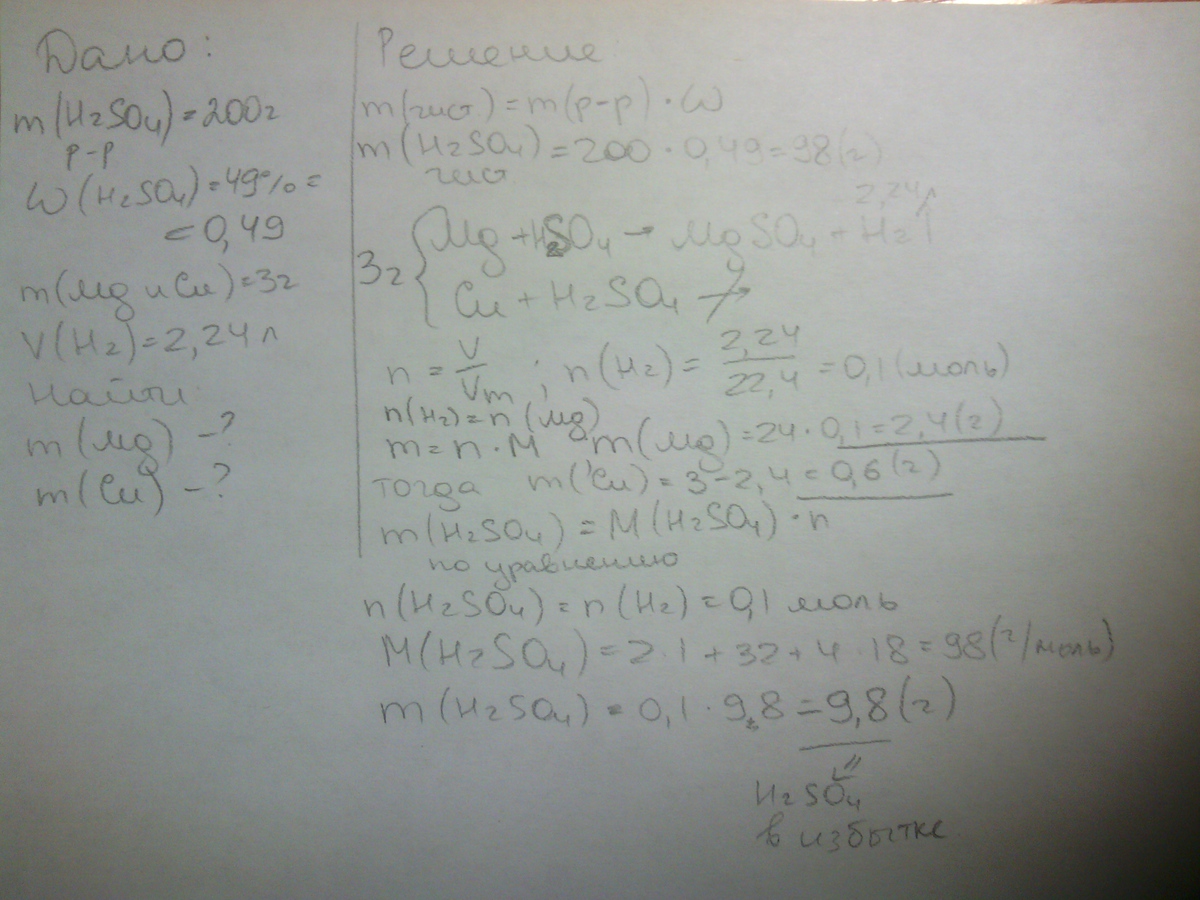 Дано:
m(H2SO4)=200г
р-р
ω(H2SO4)=49%=
=0,49
m(Mg и Cu)=3г
V(H2)=2,24 л
Найти
m(Mg) -?
m(Cu) -?
Решение
m(чист.)=m(р-р)·ω
m(H2SO4)=200·0,49=98(г)
чист
2,24л
3г { Mg+H2SO4→MgSO4+H2↑
Cu+H2SO4 ↛
n=V/Vm; n(H2)=2,24/22,4=0,1(моль)
n(H2)=n(Mg)
m=n·M m(Mg)=24·0,1=2,4(г)
тогда m(Cu)=3-2,4=0,6(г)
m(H2SO4)=M(H2SO4)·n
по уравнению
n(H2SO4)=n(H2)=0,1 моль
M(H2SO4)=2·1+32+4·18=98(г/моль)
m(H2SO4)=0,1·9,8=9,8(г)
⇓
H2SO4
в избытке.